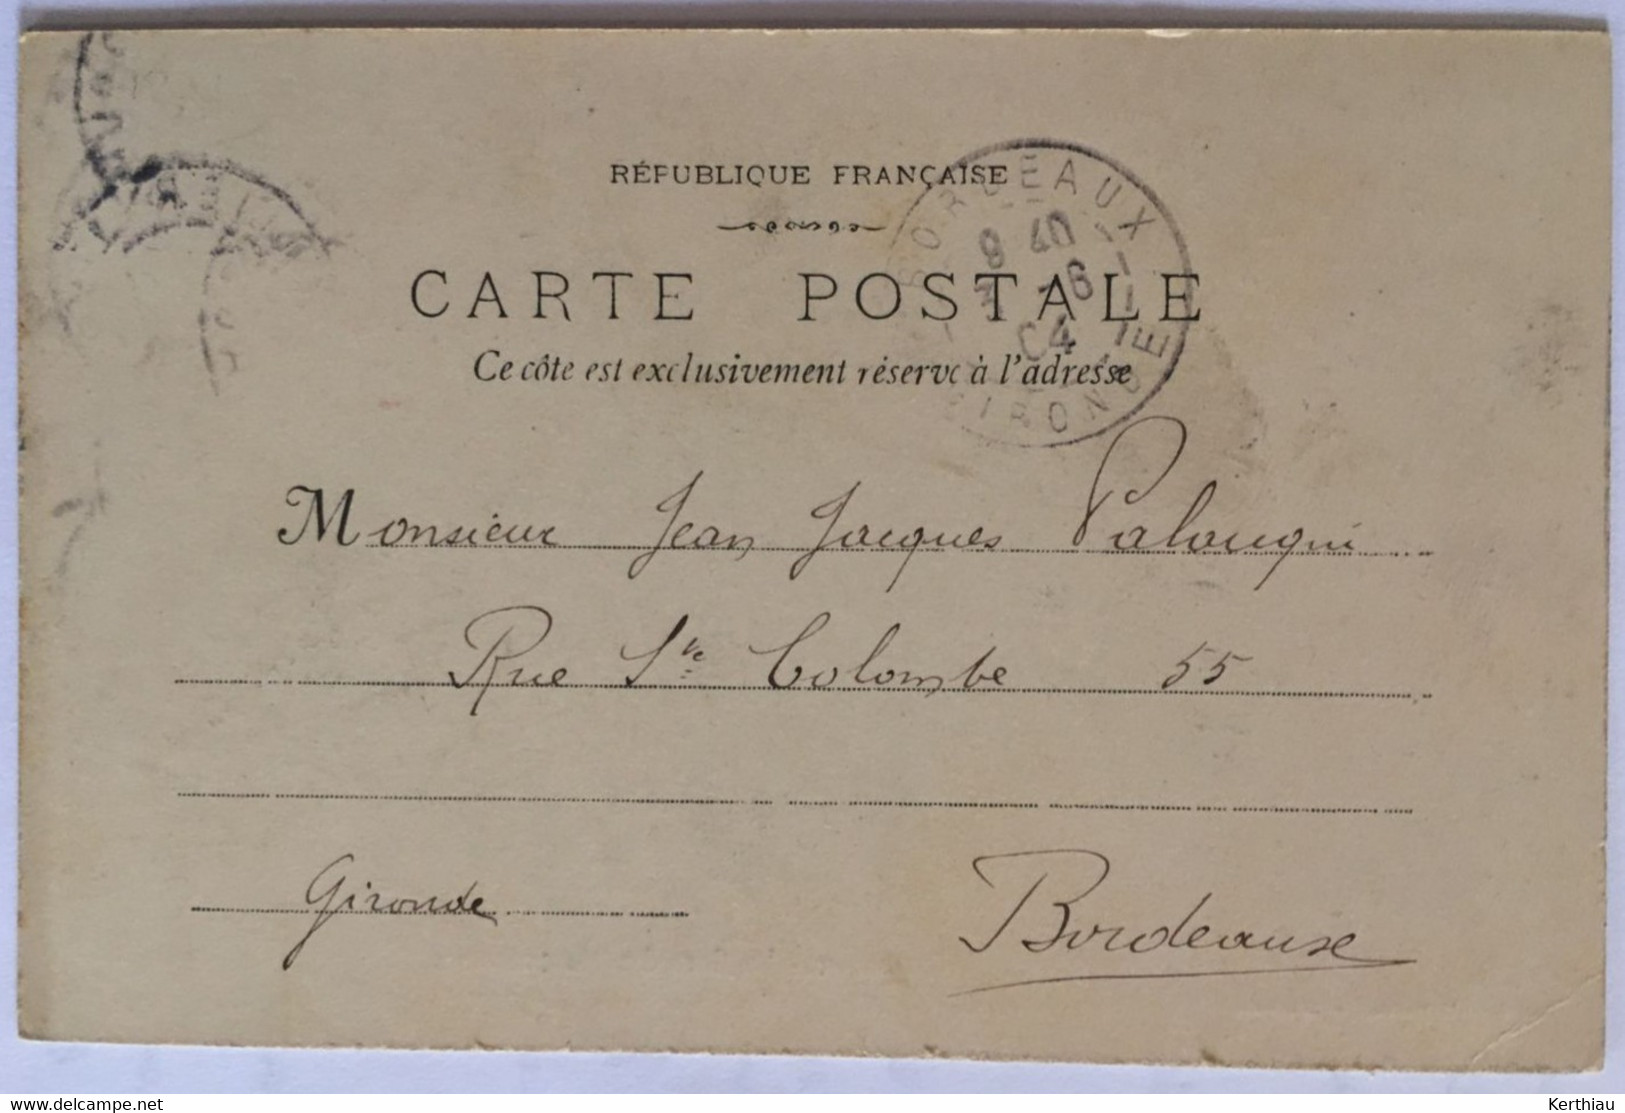 RÉPUBLIQUE FRANÇAISE
BORDEAUX
8 40
-6
04
GIRONDE
CARTE POSTALE
Ce côté est exclusivement réservé à l'adresse
Monsieur Jean Jacques Palouqui
Rue Ste Colombe 55
Gironde
Bordeaux
www.delcampe.net
Kerthiau